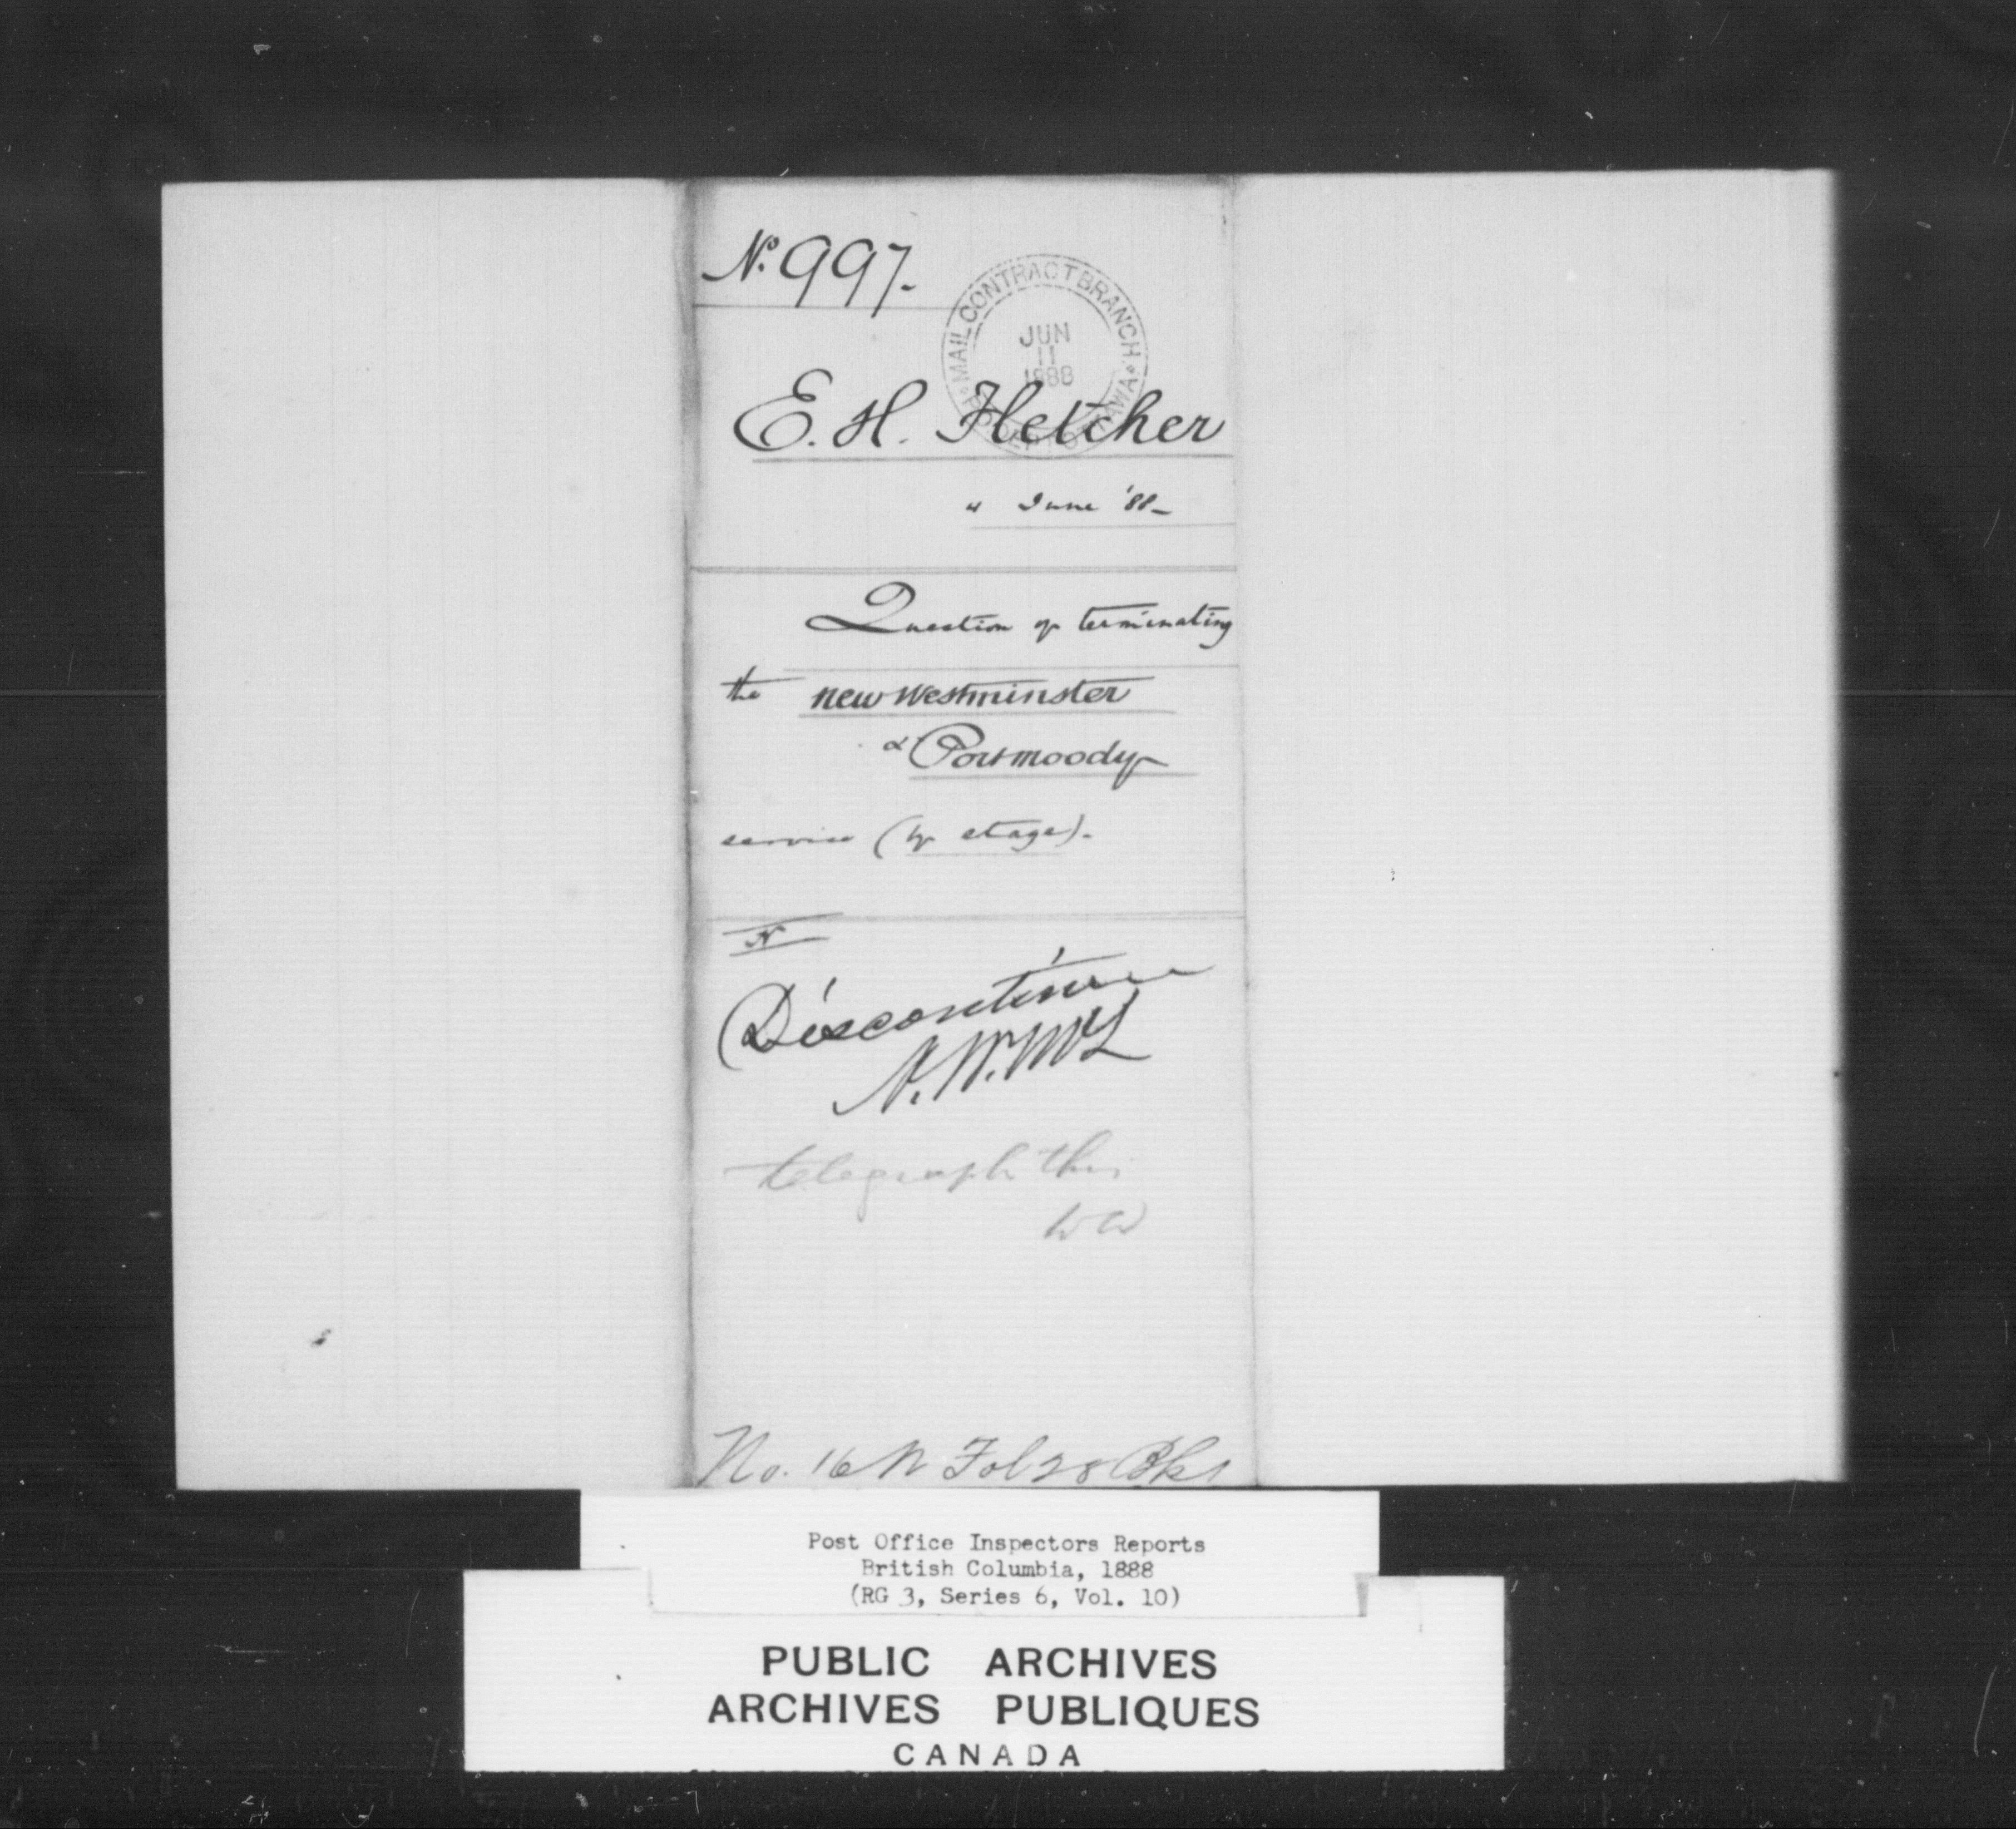 No. 997.
MAIL CONTRACT BRANCH.
P.O. DEPT OTTAWA
JUN
11
1888
E. H. Fletcher
4 June '88_
Question of terminating
the New Westminster
& Port Moody
service (by stage).
N
Discontinue
A. W. McL
telegraph this
WW
No. 16 N Fol 28 Bk 1
Post Office Inspectors Reports
British Columbia, 1888
(RG 3, Series 6, Vol. 10)
PUBLIC ARCHIVES
ARCHIVES PUBLIQUES
CANADA